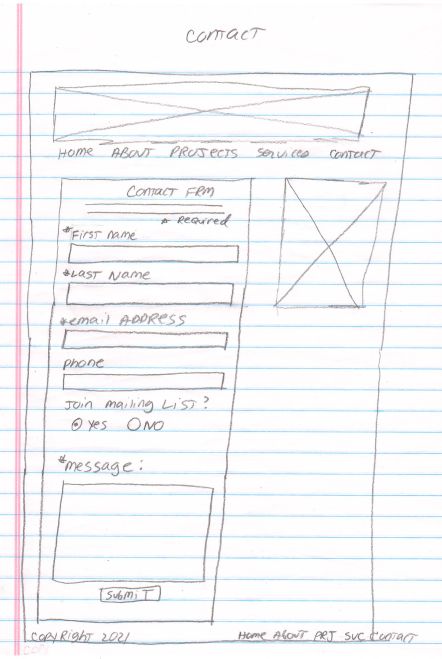 Contact
Home ABOUT PROJECTS Services Contact
Contact FRM
* Required
*First name
*Last Name
*email ADDRESS
Phone
Join mailing List?
Yes NO
*message:
Submit
Copyright 2021
Home About PRJ SVC Contact